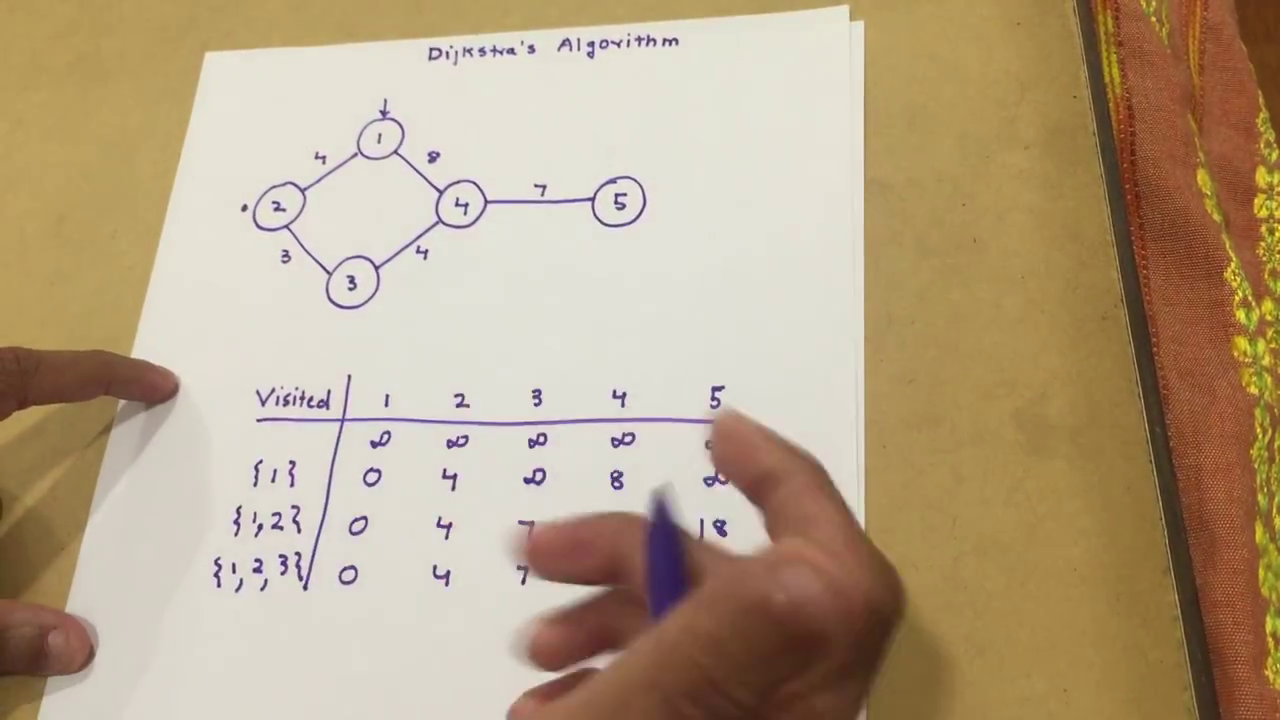 Dijkstra's Algorithm
1
4 8
2 4 7 5
3 4
3
Visited 1 2 3 4 5
∞ ∞ ∞ ∞
{1} 0 4 ∞ 8 ∞
{1,2} 0 4 7 18
{1,2,3} 0 4 7